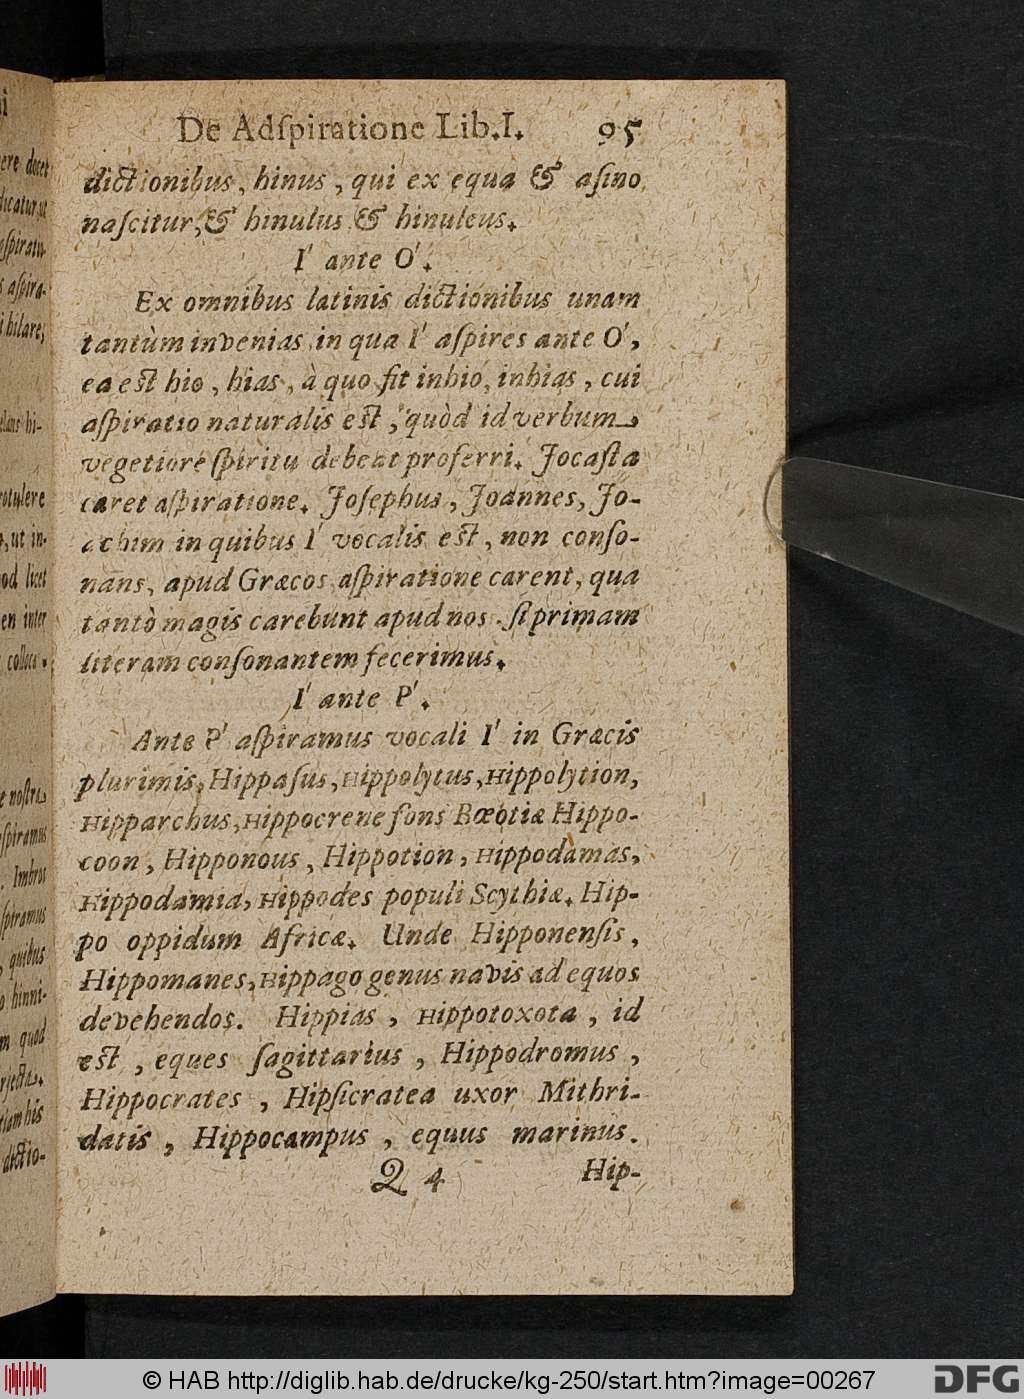 De Adſpiratione Lib.I. 95
dictionibus, hinus, qui ex equa & aſino
naſcitur, & hinulus & hinuleus.
I' ante O'.
Ex omnibus latinis dictionibus unam
tantùm invenias in qua I' aſpires ante O',
ea est hio, hias, à quo fit inhio, inhias, cui
aſpiratio naturalis est, quòd id verbum
vegetiore ſpiritu debeat proferri. Jocaſta
caret aſpiratione. Joſephus, Joannes, Jo-
achim in quibus I' vocalis est, non conſo-
nans, apud Græcos aſpiratione carent, qua
tantò magis carebunt apud nos ſi primam
literam conſonantem fecerimus.
I' ante P'.
Ante P' aſpiramus vocali I' in Græcis
plurimis, Hippaſus, Hippolytus, Hippolytion,
Hipparchus, Hippocrene fons Bœotiæ Hippo-
coon, Hipponous, Hippotion, Hippodamas,
Hippodamia, Hippodes populi Scythiæ. Hip-
po oppidum Africæ. Unde Hipponenſis,
Hippomanes, Hippago genus navis ad equos
devehendos. Hippias, Hippotoxota, id
est, eques ſagittarius, Hippodromus,
Hippocrates, Hipſicratea uxor Mithri-
datis, Hippocampus, equus marinus.
Q 4 Hip-
ere docet
dicatur, ut
i hilare;
rotulere
ut in-
od licet
en inter
Imbros
quibus
hinni-
quod
dictio-
© HAB http://diglib.hab.de/drucke/kg-250/start.htm?image=00267
DFG